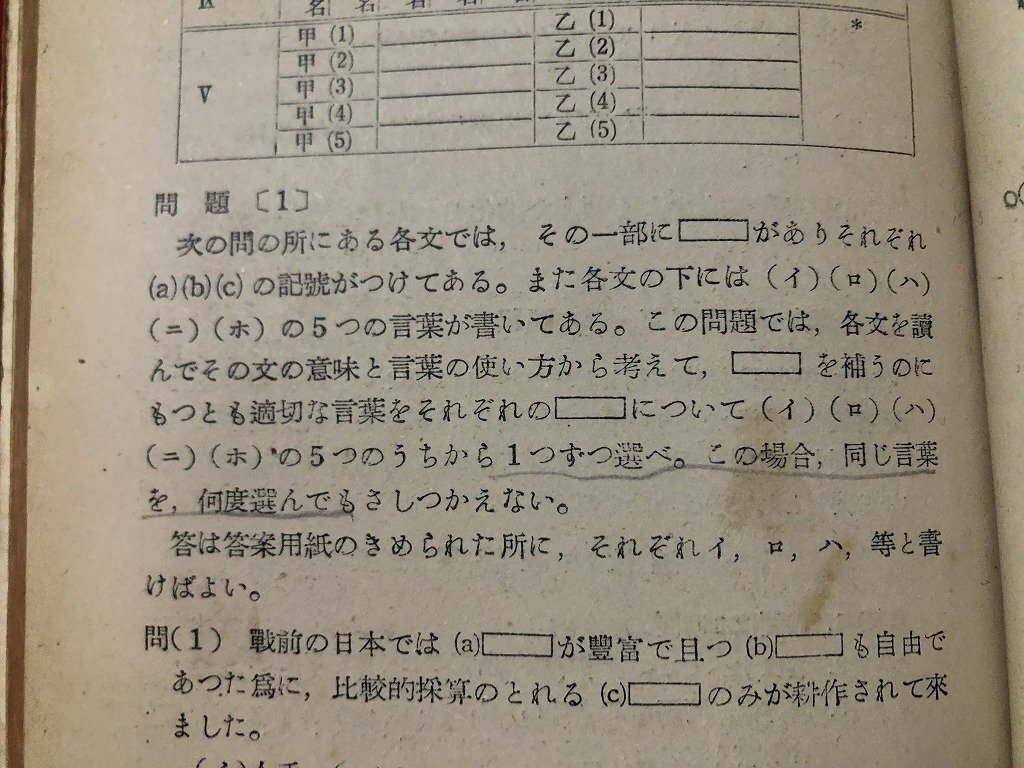 甲 (1) 乙 (1) *
甲 (2) 乙 (2)
V 甲 (3) 乙 (3)
甲 (4) 乙 (4)
甲 (5) 乙 (5)
問 題 〔1〕
次の問の所にある各文では, その一部に□がありそれぞれ
(a)(b)(c) の記號がつけてある。また各文の下には (イ) (ロ) (ハ)
(ニ) (ホ) の5つの言葉が書いてある。この問題では, 各文を讀
んでその文の意味と言葉の使い方から考えて, □ を補うのに
もつとも適切な言葉をそれぞれの□について (イ) (ロ) (ハ)
(ニ) (ホ) の5つのうちから1つずつ選べ。この場合, 同じ言葉
を, 何度選んでもさしつかえない。
答は答案用紙のきめられた所に, それぞれイ, ロ, ハ, 等と書
けばよい。
問(1) 戰前の日本では (a)□が豐富で且つ (b)□も自由で
あつた爲に, 比較的採算のとれる (c)□のみが耕作されて來
ました。